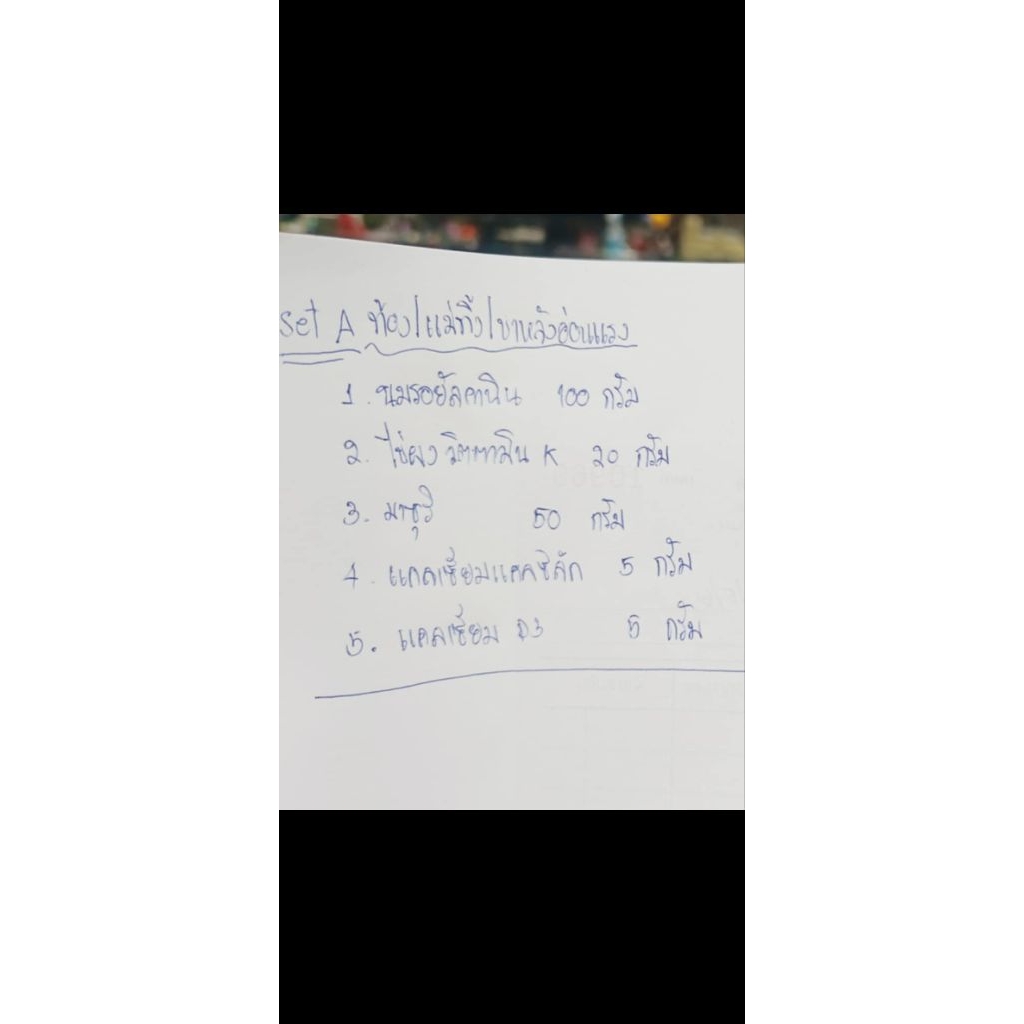 set A ท้อง/แม่ทิ้ง/ขาหลังอ่อนแรง
1. นมรอยัลคานิน 100 กรัม
2. ไข่ผง วิตตามิน K 20 กรัม
3. มาซูริ 50 กรัม
4. แคลเซียมแคลซีลัก 5 กรัม
5. แคลเซียม D3 5 กรัม